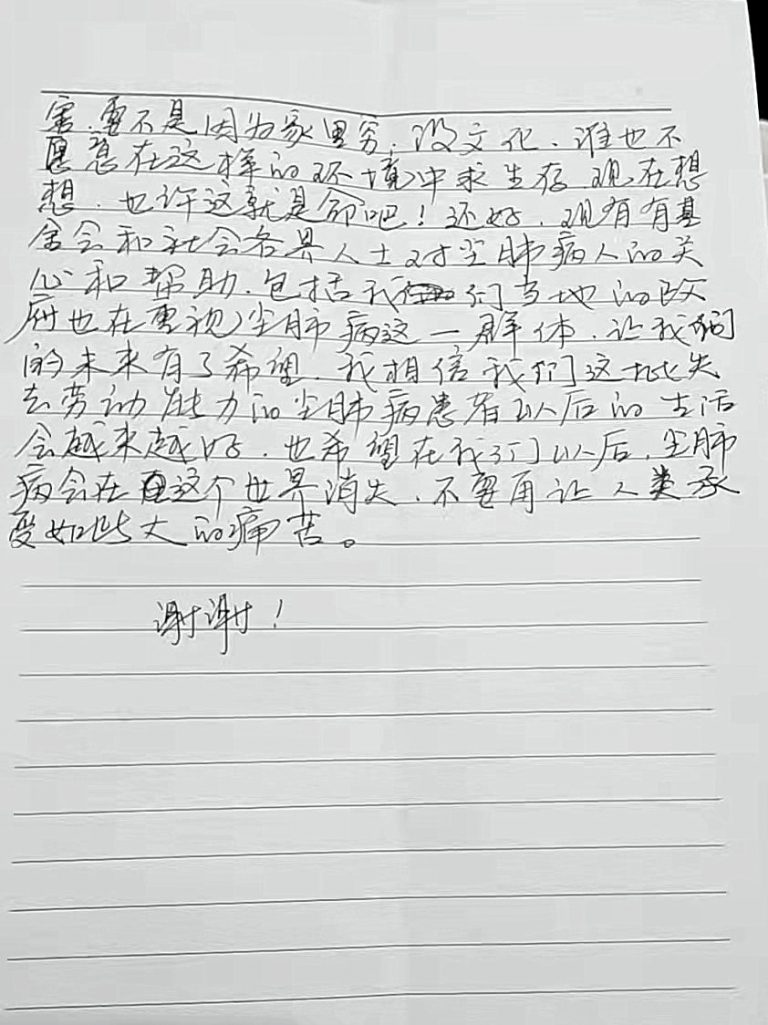 害，要不是因为家里穷，没文化，谁也不
愿意在这样的环境中求生存，现在想
想，也许这就是命吧！还好，现有有基
金会和社会各界人士对尘肺病人的关
心和帮助，包括我们当地的政
府也在重视尘肺病这一群体，让我们
的未来有了希望，我相信我们这批失
去劳动能力的尘肺病患者以后的生活
会越来越好，也希望在我们以后，尘肺
病会在这个世界消失，不要再让人类承
受如此大的痛苦。
谢谢！